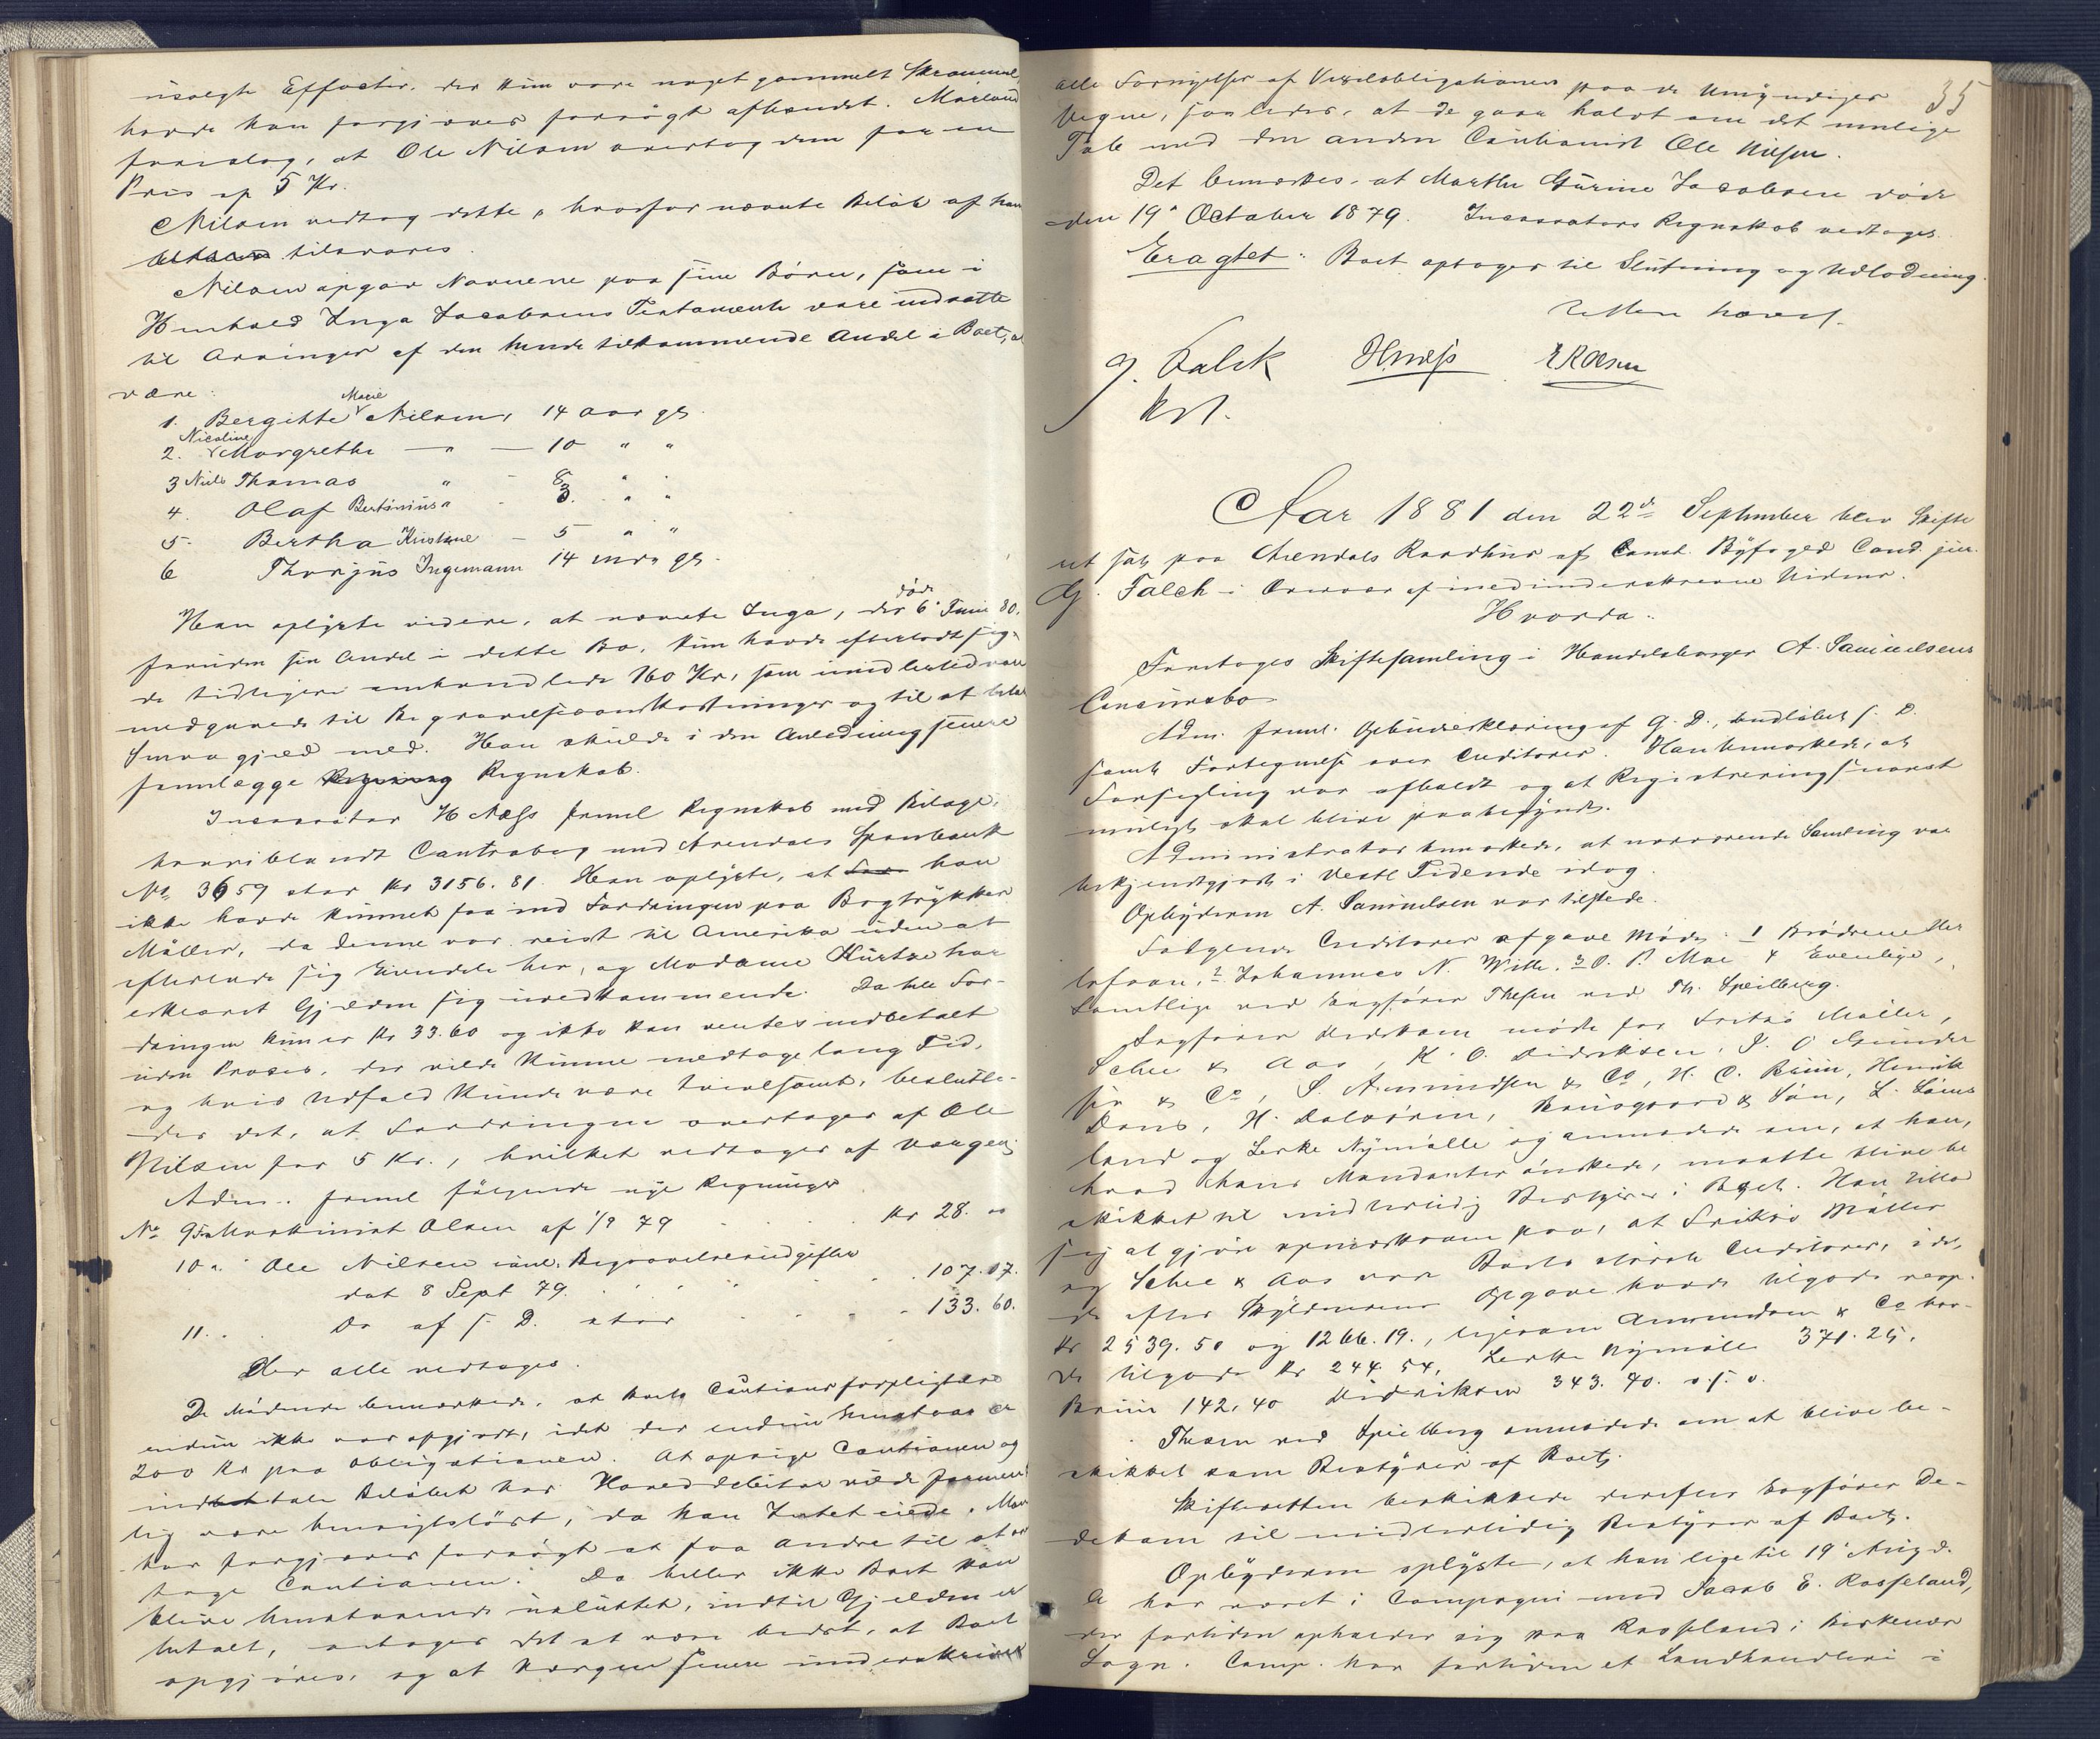 usolgte Effecter, der kun vare noget gammelt Skrammel,
havde han forgjæves forsøgt afhændet. Mæland
foreslog, at Ole Nilsen overtog dem for en
Pris af 5 Kr.
Nilsen vedtog dette, hvorfor nævnte Beløb af ham
tilsvares.
Nilsen opgav Navnene paa sine Børn, som i
Henhold Inga Jacobsens Testamente vare indsatte
til Arvinger af den hende tilkommende Andel i Boet, at
være:
1. Bergitte Marie Nilsen, 14 Aar gl.
2. Nicoline Margrethe — " — 10 " "
3 Niels Thomas " - 8 " "
4. Olaf Bertinius " - 3. " "
5. Bertha Kristine — 5 " "
6 Thorjus Ingemann 14 mdr gl.
Han oplyste videre, at nævnte Inga, der døde 6' Juni 80,
foruden sin Andel i dette Bo, kun havde efterladt sig
de tidligere omhandlede 160 Kr, som imidlertid vare
medgaaede til Begravelsesomkostninger og til at betale
Smaagjæld med. Han skulde i den Anledning senere
fremlægge Regning Regnskab.
Incassator H Næss freml Regnskab med Bilage,
hvoriblandt Contrabog med Arendals Sparebank
No 3659 stor Kr 3156. 81. Han oplyste, at han
ikke havde kunnet faa ind Fordringen paa Bogtrykker
Møller, da denne var reist til Amerika uden at
efterlade sig Eiendele her, og Madame Kurtze har
erklæret Gjælden sig uvedkommende. Da hele For-
dringen kun er Kr 33.60 og ikke kan ventes indbetalt
uden Proces, der vilde kunne medtage lang Tid,
og hvis Udfald kunde være tvivlsomt, beslutte-
des det, at Fordringen overtages af Ole
Nilsen for 5 Kr., hvilket vedtages af Værgen.
Adm. freml følgende nye Regninger
No 9 Fra Maskinist Olsen af 1/9 79 . . . Kr 28. 00
10 " Ole Nilsen Begravelsesudgifter
dat 8 Sept 79. . . . 107. 07.
11. . Do af s. D. stor . . . 133. 60.
Der alle vedtages.
De Mødende bemærkede, at Boets Cautionsforpligtelse
endnu ikke var opgjort, idet der endnu henstaar ca
200 Kr paa Obligationen. At opsige Cautionen og
indtale Beløbet hos Hoveddebitor vilde formentlig
være hensigtsløst, da han Intet eiede. Man
har forgjæves forsøgt at faa Andre til at over-
tage Cautionen. Da heller ikke Boet kan
blive henstaaende usluttet, indtil Gjælden er
betalt, antages det at være bedst, at Boet
opgjøres, og at Værgen senere underskriver
35
alle Fornyelser af Vexelobligationen paa de Umyndiges
Vegne, saaledes, at de gaar halvt om det mulige
Tab med den anden Cautionist Ole Nilsen.
Det bemærkes, at Marthe Gurine Jacobsen døde
den 19' October 1879. Incassators Regnskab vedtages.
Eragtet: Boet optages til Slutning og Udlodning.
Retten hævet.
G. Falck HNæss
Kst.
Aar 1881 den 22de September blev Skifte
ret sat paa Arendals Raadhus af Const. Byfoged Cand. jur.
G. Falch i Overvær af medunderskrevne Vidner.
Hvorda:
Foretoges Skiftesamling i Handelsborger A. Samuelsens
Concursbo
Adm. freml. Opbudserklæring af G. D., indløbet s. D.
samt Fortegnelse over Creditorer. Han bemærkede, at
Forsegling var afholdt og at Registrering snarest
muligt skal blive paabegyndt.
Administrator bemærkede, at nærværende Samling var
bekjendtgjort i Vestl. Tidende idag.
Opbyderen A. Samuelsen var tilstede.
Følgende Creditorer afgave Møde: 1 Brødrene
2 Johannes N. Wille. 3 O. P. Moe 4 Evenlige,
samtlige ved Sagfører Thesen ved Th. Speilberg.
Sagfører Dedekam mødte for Fritz Møller,
Schee & Aas, K. O. Didriksen, J. O Gunder
sen & Co, S. Amundsen & Co, H. C. Bruun, Henrik
Dons, H. Dalsøren, & Søn, L.
land og Lerke Nymølle og anmodede om, at han,
hvad hans Mandanter ønskede, maatte blive be
skikket til midlertidig Bestyrer i Boet. Han tillod
sig at gjøre opmærksom paa, at Møller
og Schee & Aas var Boets største Creditorer, idet
de efter Skyldnerens Opgave havde tilgode resp.
Kr 2539.50 og 1266.19., ligesom Amundsen & Co hav-
de tilgode Kr 244.54, Lerke Nymølle 371.25,
Bruun 142.40 Didriksen 343.90. o. s. v.
Thesen ved Speilberg anmodede om at blive be-
skikket som Bestyrer af Boet.
Skifteretten beskikkede derefter Sagfører De-
dekam til midlertidig Bestyrer af Boet.
Opbyderen oplyste, at han lige til 19' Aug d.
A. har været i Compagni med Jacob E. Rosseland,
der fortiden opholder sig paa Rosseland i Birkenæs
Sogn. Comp. har fortiden et Landhandleri i